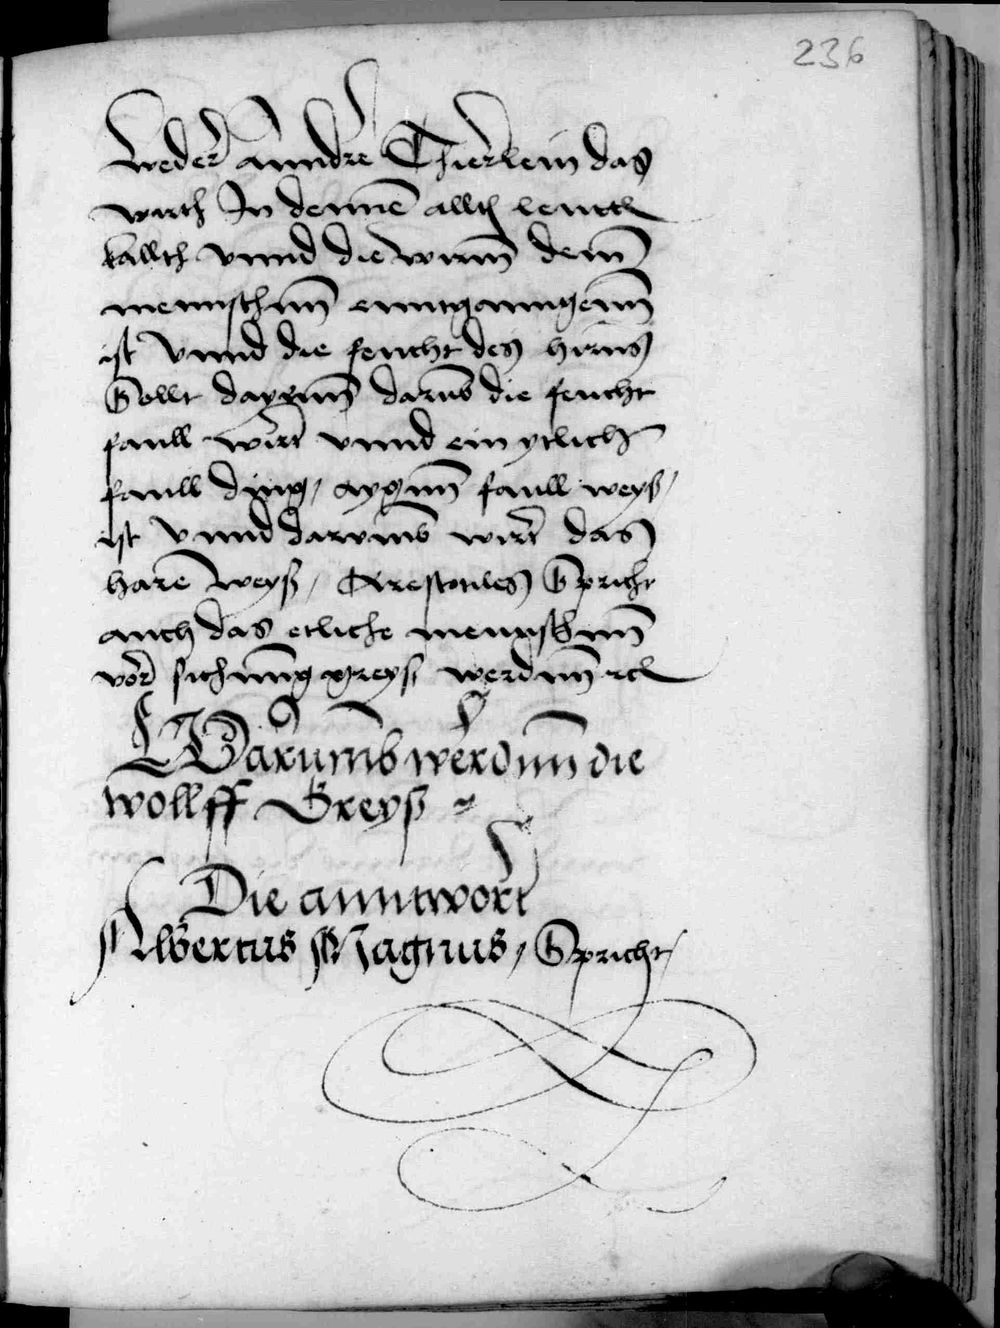 236
weder anndre Thierlein das
wirth In dennē allth leuth
kallth vnnd die wirm dem
mennschnn enntganngenn
ist Vnnd die feucht des hirns
Sollt daygnn darub die feucht
faull wirt vnnd ein ytlich
faull ding, aygnn faull weyß,
ist Vnnd darumb wirt das
hare weyß, Arestotiles Spricht
auch das etliche mennschnn
vor sichnng greyß werdnn
Warumb werdnn die
wollff Greyß
Die anntwort
Albertus Magnus, Spricht,